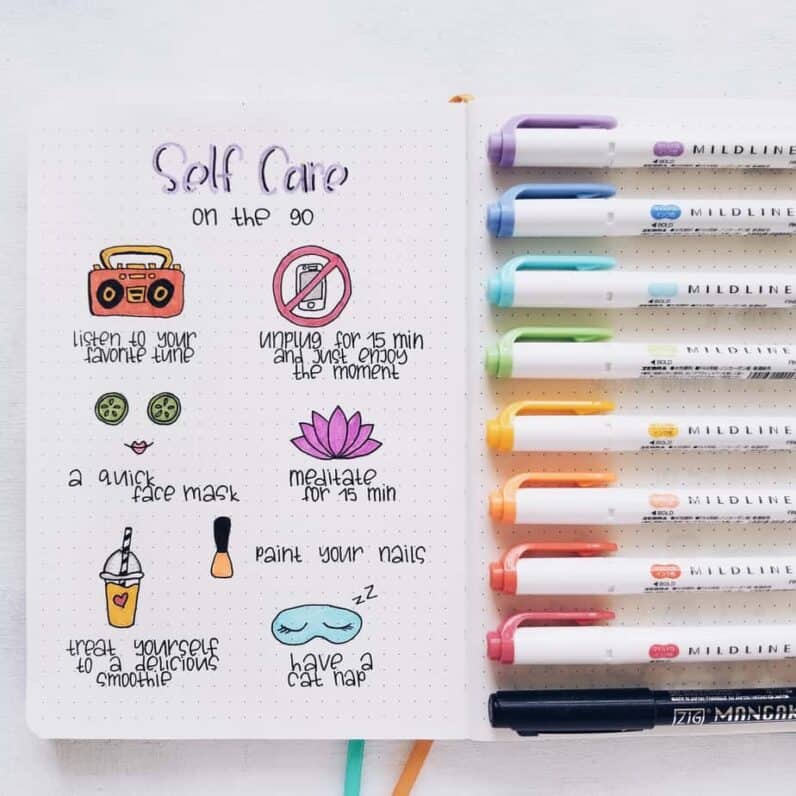 Self Care
on the go
listen to your
favorite tune
unplug for 15 min
and just enjoy
the moment
a quick
face mask
meditate
for 15 min
paint your nails
zz
treat yourself
to a delicious
smoothie
have a
cat nap
MILDLINE
◄BOLD
MILDLINE
◄BOLD
MILDLINE
◄BOLD
MILDLINE
◄BOLD
MILDLINE
◄BOLD
MILDLINE
◄BOLD
MILDLINE
◄BOLD
MILDLINE
◄BOLD
ZIG MANGAK